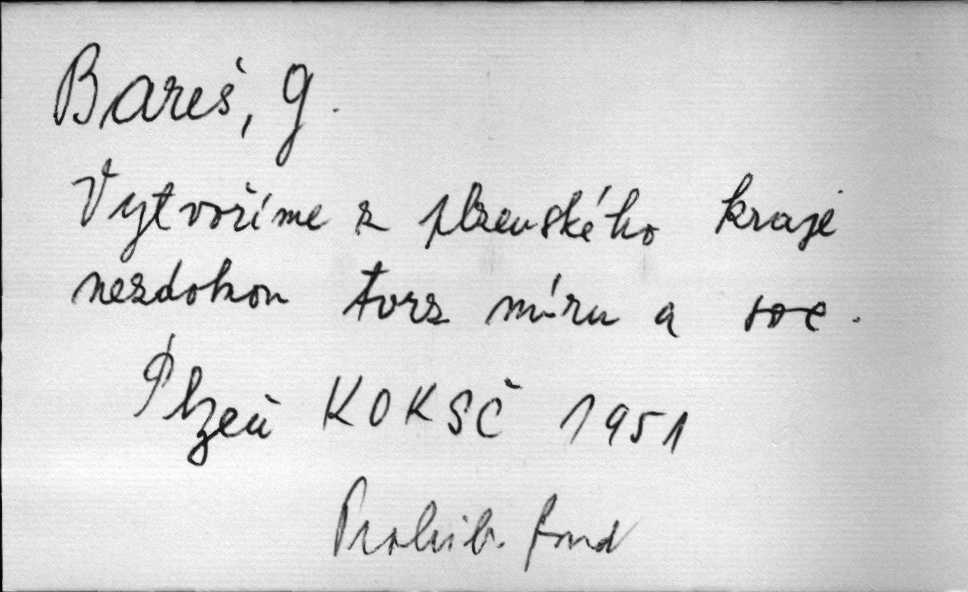 Bareš, G.
Vytvoříme z plzeňského kraje
nezdolnou tvrz míru a soc.
Plzeň KOKSČ 1951
Prohib. fond